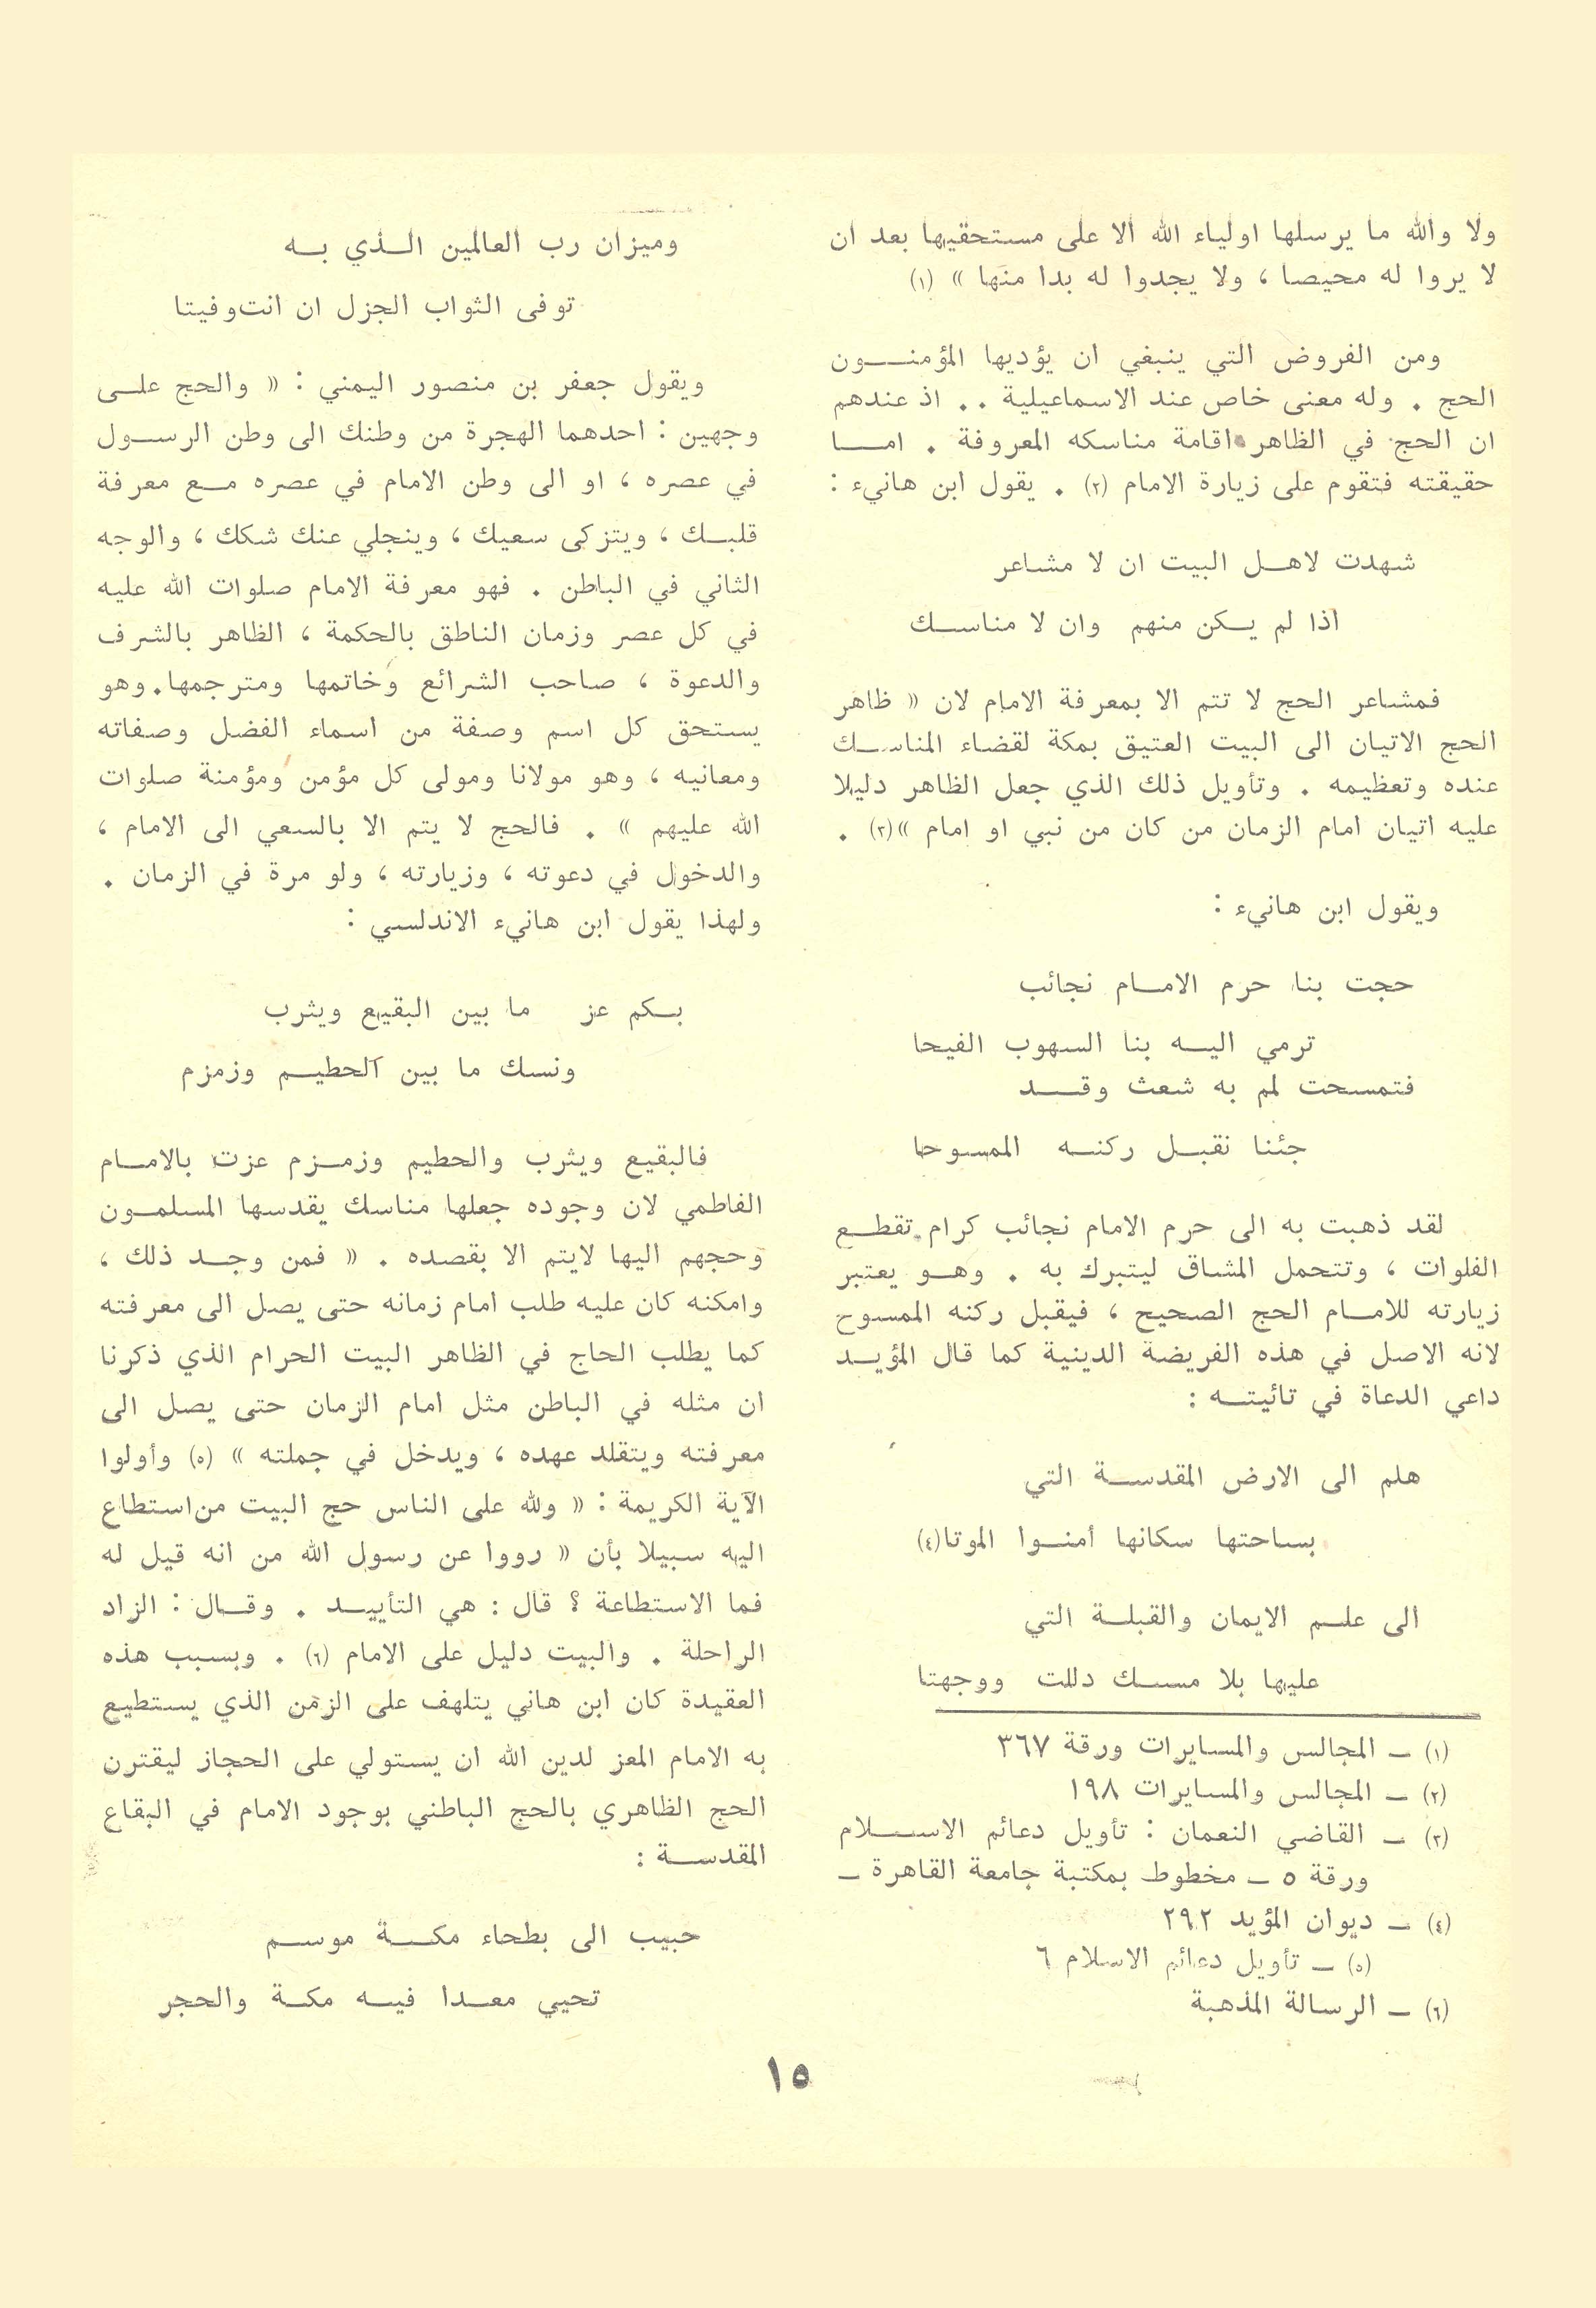 ولا والله ما يرسلها اولياء الله الا على مستحقيها بعد ان
لا يروا له محيصا ، ولا يجدوا له بدا منها » (١)
ومن الفروض التي ينبغي ان يؤديها المؤمنون
الحج . وله معنى خاص عند الاسماعيلية .. اذ عندهم
ان الحج في الظاهر اقامة مناسكه المعروفة . اما
حقيقته فتقوم على زيارة الامام (٢) . يقول ابن هانيء :
شهدت لاهل البيت ان لا مشاعر
اذا لم يكن منهم وان لا مناسك
فمشاعر الحج لا تتم الا بمعرفة الامام لان « ظاهر
الحج الاتيان الى البيت العتيق بمكة لقضاء المناسك
عنده وتعظيمه . وتأويل ذلك الذي جعل الظاهر دليلا
عليه اتيان امام الزمان من كان من نبي او امام »(٣) .
ويقول ابن هانيء :
حجت بنا حرم الامام نجائب
ترمي اليه بنا السهوب الفيحا
فتمسحت لمم به شعث وقد
جئنا نقبل ركنه الممسوحا
لقد ذهبت به الى حرم الامام نجائب كرام تقطع
الفلوات ، وتتحمل المشاق ليتبرك به . وهو يعتبر
زيارته للامام الحج الصحيح ، فيقبل ركنه الممسوح
لانه الاصل في هذه الفريضة الدينية كما قال المؤيد
داعي الدعاة في تائيته :
هلم الى الارض المقدسة التي
بساحتها سكانها أمنوا الموتا(٤)
الى علم الايمان والقبلة التي
عليها بلا مسك دللت ووجهتا
(١) ــ المجالس والمسايرات ورقة ٣٦٧
(٢) ــ المجالس والمسايرات ١٩٨
(٣) ــ القاضي النعمان : تأويل دعائم الاسلام
ورقة ٥ ــ مخطوط بمكتبة جامعة القاهرة ــ
(٤) ــ ديوان المؤيد ٢٩٢
(٥) ــ تأويل دعائم الاسلام ٦
(٦) ــ الرسالة المذهبة
وميزان رب العالمين الذي به
توفى الثواب الجزل ان انت وفيتا
ويقول جعفر بن منصور اليمني : « والحج على
وجهين : احدهما الهجرة من وطنك الى وطن الرسول
في عصره ، او الى وطن الامام في عصره مع معرفة
قلبك ، ويتزكى سعيك ، وينجلي عنك شكك ، والوجه
الثاني في الباطن . فهو معرفة الامام صلوات الله عليه
في كل عصر وزمان الناطق بالحكمة ، الظاهر بالشرف
والدعوة ، صاحب الشرائع وخاتمها ومترجمها . وهو
يستحق كل اسم وصفة من اسماء الفضل وصفاته
ومعانيه ، وهو مولانا ومولى كل مؤمن ومؤمنة صلوات
الله عليهم » . فالحج لا يتم الا بالسعي الى الامام ،
والدخول في دعوته ، وزيارته ، ولو مرة في الزمان .
ولهذا يقول ابن هانيء الاندلسي :
بكم عز ما بين البقيع ويثرب
ونسك ما بين الحطيم وزمزم
فالبقيع ويثرب والحطيم وزمزم عزت بالامام
الفاطمي لان وجوده جعلها مناسك يقدسها المسلمون
وحجهم اليها لايتم الا بقصده . « فمن وجد ذلك ،
وامكنه كان عليه طلب امام زمانه حتى يصل الى معرفته
كما يطلب الحاج في الظاهر البيت الحرام الذي ذكرنا
ان مثله في الباطن مثل امام الزمان حتى يصل الى
معرفته ويتقلد عهده ، ويدخل في جملته » (٥) وأولوا
الآية الكريمة : « ولله على الناس حج البيت من استطاع
اليه سبيلا بأن « رووا عن رسول الله من انه قيل له
فما الاستطاعة ؟ قال : هي التأييد . وقال : الزاد
الراحلة . والبيت دليل على الامام (٦) . وبسبب هذه
العقيدة كان ابن هاني يتلهف على الزمن الذي يستطيع
به الامام المعز لدين الله ان يستولي على الحجاز ليقترن
الحج الظاهري بالحج الباطني بوجود الامام في البقاع
المقدسة :
حبيب الى بطحاء مكة موسم
تحيي معدا فيه مكة والحجر
١٥